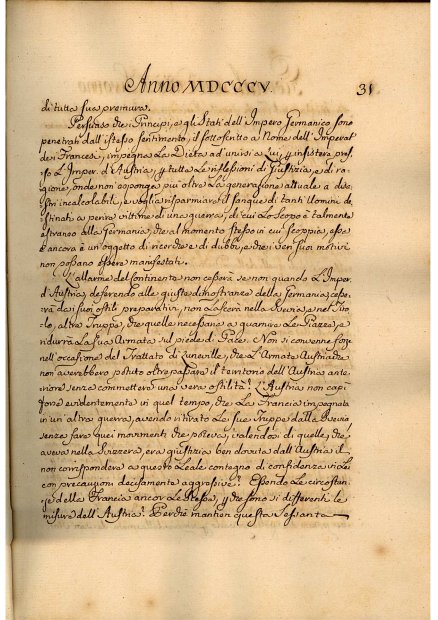 Anno MDCCCV. 31
di tutta sua premura.
Persuaso che i Principi, e gli Stati dell'Impero Germanico sono
penetrati dall'istesso sentimento, il sottoscritto a Nome dell'Imperat
de' Francesi, impegna La Dieta ad unirsi a Lui, p insistere pres,
so L'Imper. d'Austria, p tutte Le riflessioni di Giustizia, e di ra,
gione, onde non esponga più oltre La generazione attuale a disa,
stri incalcolabili, e voglia risparmiare il sangue di tanti Uomini de,
stinati a perire vittime di una guerra, di cui Lo scopo è talmente
estraneo alla Germania, che al momento stesso in cui scoppia, esso
è ancora è un'oggetto di ricerche e di dubbi, e che i veri suoi motivi
non possano essere manifestati.
L'allarme del Continente non cesserà se non quando L'Imper.
d'Austria deferendo alle giuste dimostranze della Germania cesse,
rà da' suoi ostili preparativi, non Lascerà nella Svevia, e nel Tiro,
lo, altre Truppe, che quelle necessarie a guarnire Le Piazze, e
ridurrà La sua Armata sul piede di Pace. Non si convenne forse
nell'occasione del Trattato di Luneville, che Le Armate Austriache
non averebbero potuto oltrepassare il territorio dell'Austria ante,
riore senza commettere una vera ostilità? L'Austria non capì
forse evidentemente in quel tempo, che La Francia impegnata
in un'altra guerra, avendo ritirato Le sue Truppe dalla Svevia
senza fare quei movimenti che poteva, valendosi di quelle, che
aveva nella Svizzera, era giustizia ben dovuta dall'Austria il
non corrispondere a questo Leale contegno di confidenza
con precauzioni decisamente aggressive? Essendo Le circostan,
ze della Francia ancor Le stesse, p che sono sì differenti le
misure dell'Austria? Perchè mantien questa Sessanta